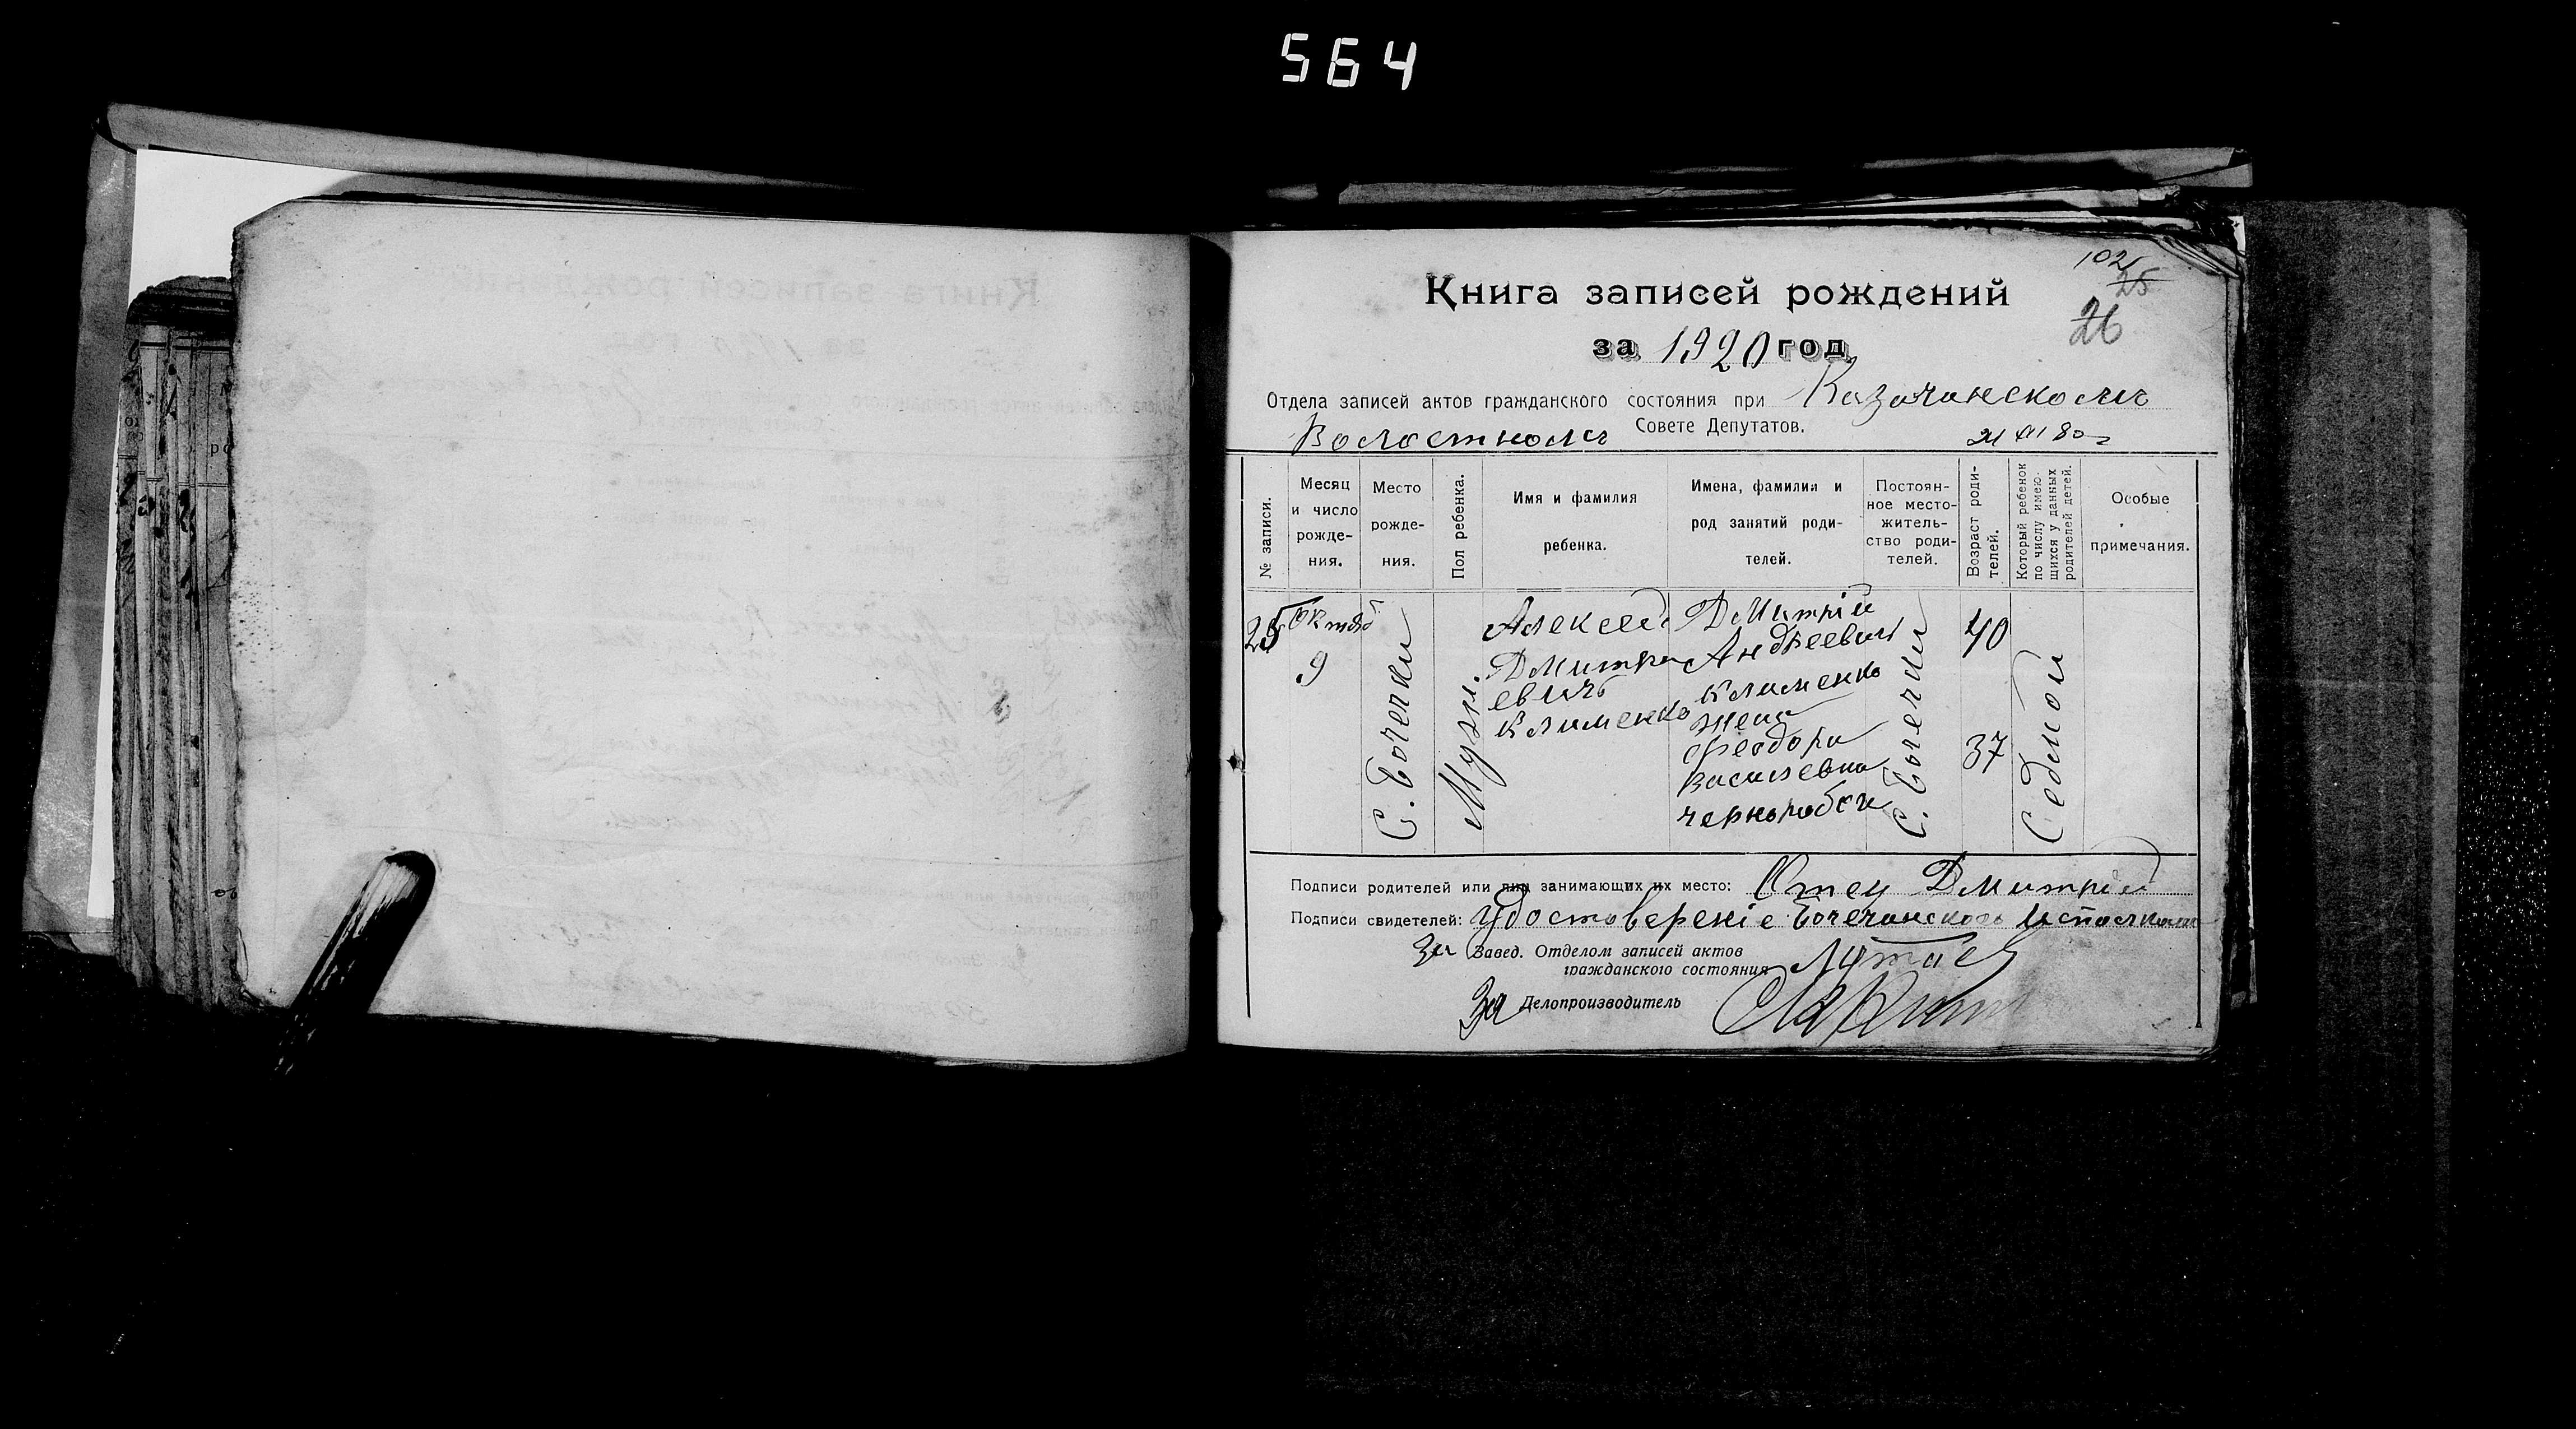 564
102
25
26
Книга записей рождений
за 1920 год
Отдела записей актов гражданского состояния при Казачанскомъ
Волостномъ Совете Депутатов.
21 XII 80 г
№ записи.
Месяц и число рожде-ния.
Место рожде-ния.
Пол ребенка.
Имя и фамилия ребенка.
Имена, фамилии и род занятий роди-телей.
Постоян-ное место-житель-ство роди-телей.
Возраст роди-телей.
Который ребенок по числу имею-щихся у данных родителей детей.
Особые примечания.
25
Октяб
9
С. Бочечки
Мужс.
Алексей
Дмитри
евичъ
Клименко
Дмитрій
Андреевич
Клименко
жена
Феодора
Васильевна
чернорабоч
С. Бочечки
40
37
Седмой
Подписи родителей или лиц занимающих их место: Отец Дмитрий
Подписи свидетелей: Удостоверение Бочечанского Исполкома
За Завед. Отделом записей актов
гражданского состояния
За Делопроизводитель